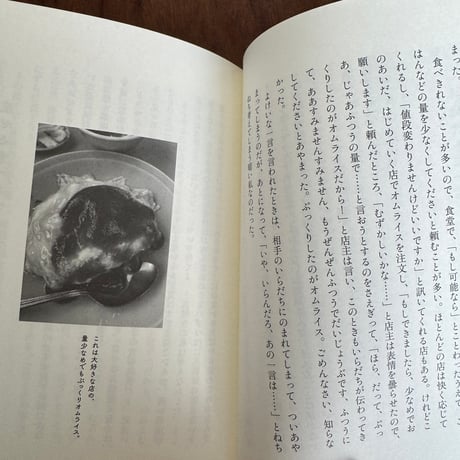 まった。
食べきれないことが多いので、食堂で、「もし可能なら」とことわったうえでご
はんなどの量を少なくしてくださいと頼むことが多い。ほとんどの店は快く応じて
くれるし、「値段変わりませんけどいいですか」と訊いてくれる店もある。けれどこ
のあいだ、はじめていく店でオムライスを注文し、「もしできましたら、少なめでお
願いします」と頼んだところ、「むずかしいかな……」と店主は表情を曇らせたので、
あ、じゃあふつうの量で……と言おうとするのをさえぎって、「ほら、だって、ぷっ
くりしたのがオムライスだから！」と店主は言い、このときもいらだちが伝わってき
て、ああすみませんすみません、もうぜんぜんふつうでだいじょうぶです、ふつうに
してくださいとあやまった。ぷっくりしたのがオムライス。ごめんなさい、知らな
かった。
よけいな一言を言われたときは、相手のいらだちにのまれてしまって、ついあや
まってしまうのだが、あとになって、「いや、いらんだろ、あの一言は……」とねち
ねち考えてしまう暗い私なのだった。
これは大好きな店の、
量少なめでもぷっくりオムライス。